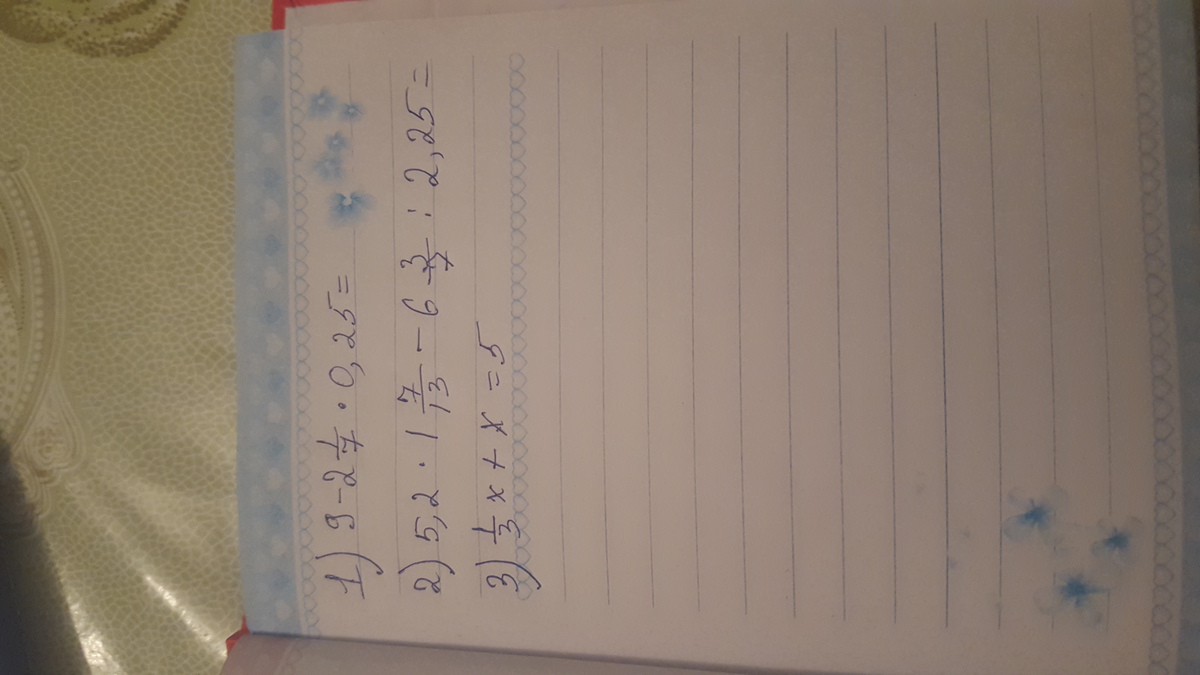 1) 9 - 2 1/7 · 0,25 =
2) 5,2 · 1 7/13 - 6 3/7 : 2,25 =
3) 1/3 x + x = 5